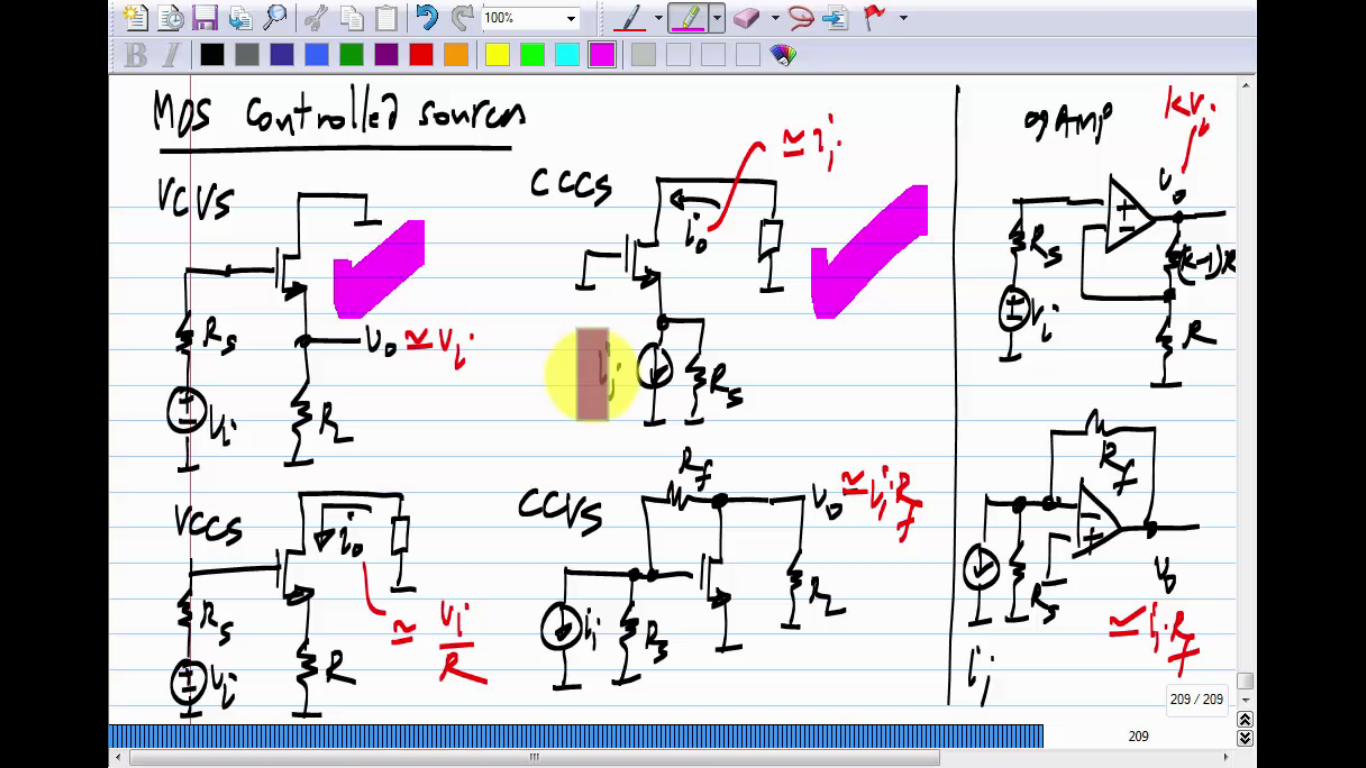 100%
B I
MOS Controlled sources
VCVS
Rs
Vi
vo ≃ vi
RL
CCCS
≃ ii
io
ii
Rs
VCCS
io
Rs
Vi
≃ vi/R
R
CCVS
Rf
vo ≃ ii Rf
ii
Rs
RL
opAmp
kvi
vo
Rs
Vi
(k-1)R
R
Rf
Rs
vo
≃ ii Rf
ii
209 / 209
209